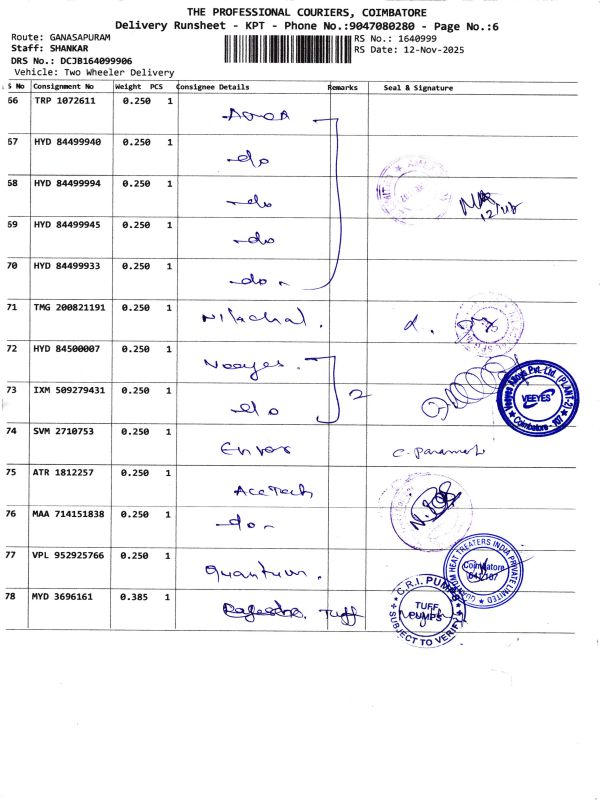 THE PROFESSIONAL COURIERS, COIMBATORE
Delivery Runsheet - KPT - Phone No.:9047080280 - Page No.:6
Route: GANASAPURAM
RS No.: 1640999
Staff: SHANKAR
RS Date: 12-Nov-2025
DRS No.: DCJB164099906
Vehicle: Two Wheeler Delivery
S No Consignment No Weight PCS Consignee Details Remarks Seal & Signature
66 TRP 1072611 0.250 1
67 HYD 84499940 0.250 1 -do
68 HYD 84499994 0.250 1 -do
69 HYD 84499945 0.250 1 -do
70 HYD 84499933 0.250 1 -do-
71 TMG 200821191 0.250 1 Nilachal.
72 HYD 84500007 0.250 1 Veeyes.
73 IXM 509279431 0.250 1 do 2
Veeyes Pvt. Ltd. (PLANT-2)
VEEYES
Coimbatore - 107
74 SVM 2710753 0.250 1
75 ATR 1812257 0.250 1 AceTech
76 MAA 714151838 0.250 1 -do-
77 VPL 952925766 0.250 1 Quantum.
QUANTUM HEAT TREATERS INDIA PRIVATE LIMITED
Coimbatore
641107
78 MYD 3696161 0.385 1 Tuff
C.R.I. PUMPS
TUFF
PUMPS
SUBJECT TO VERIFY